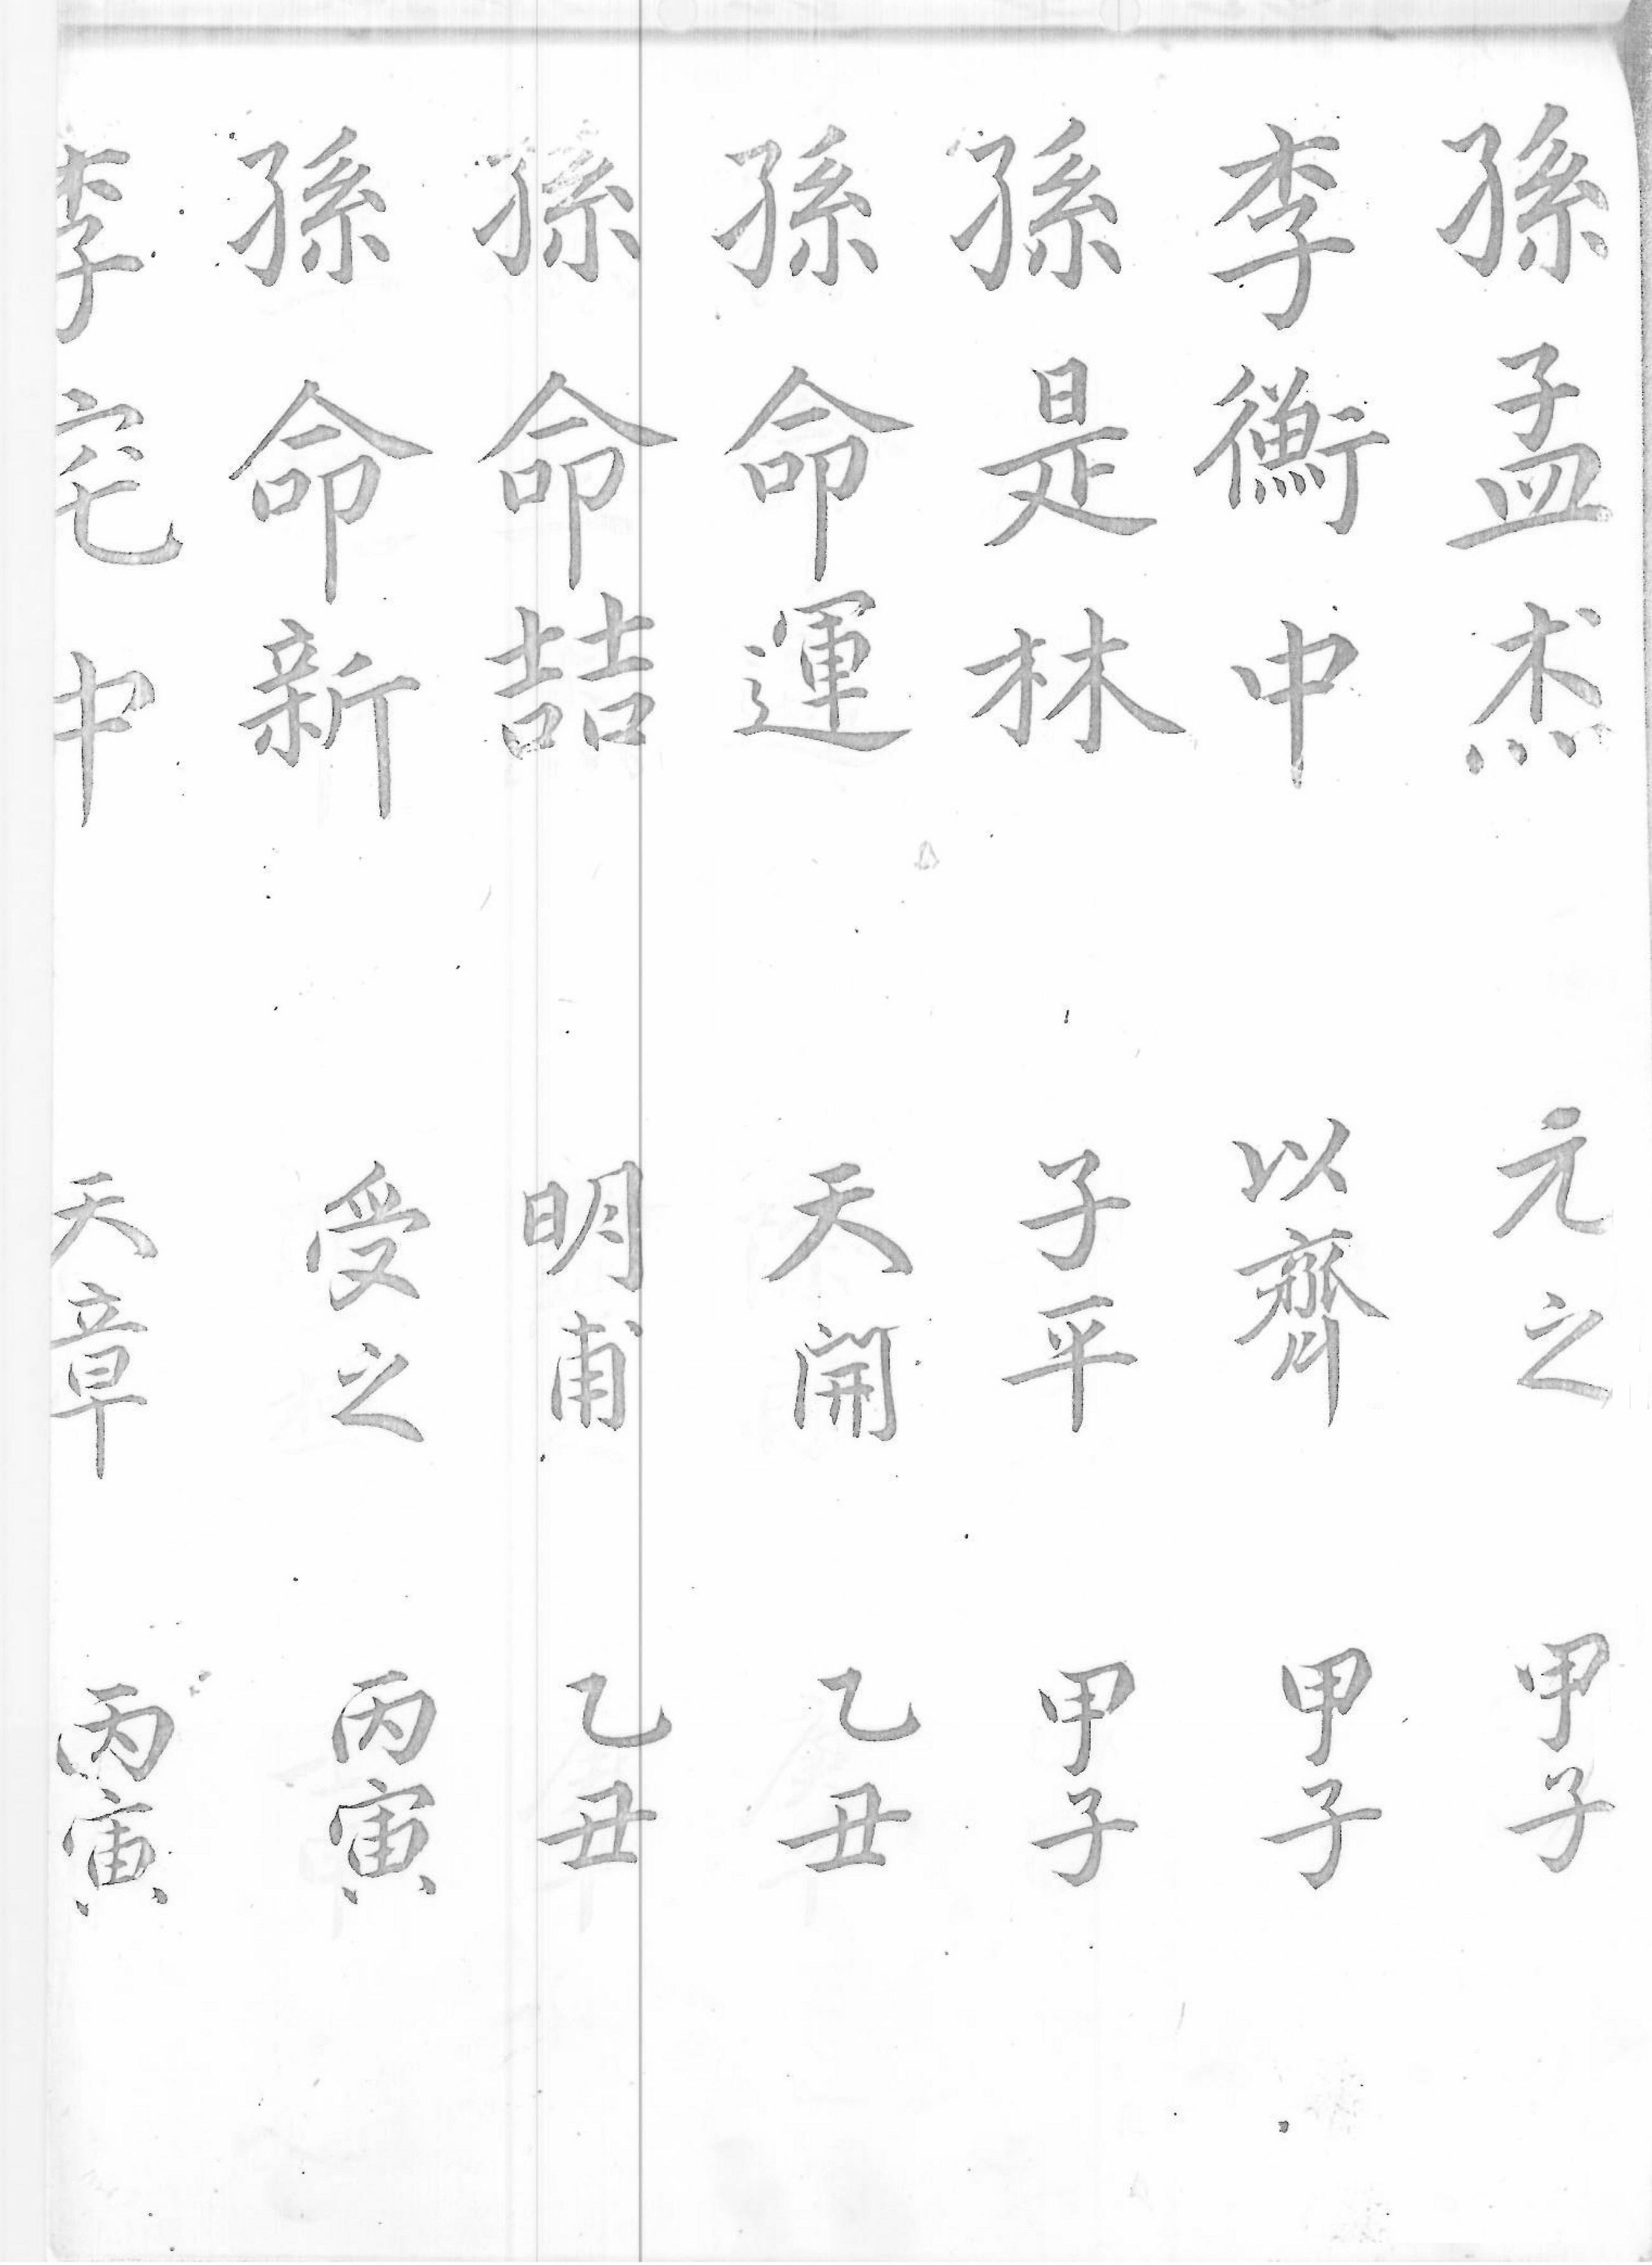 孫孟杰 元之 甲子
李衡中 以齊 甲子
孫是林 子平 甲子
孫命運 天開 乙丑
孫命喆 明甫 乙丑
孫命新 受之 丙寅
李宅中 天章 丙寅